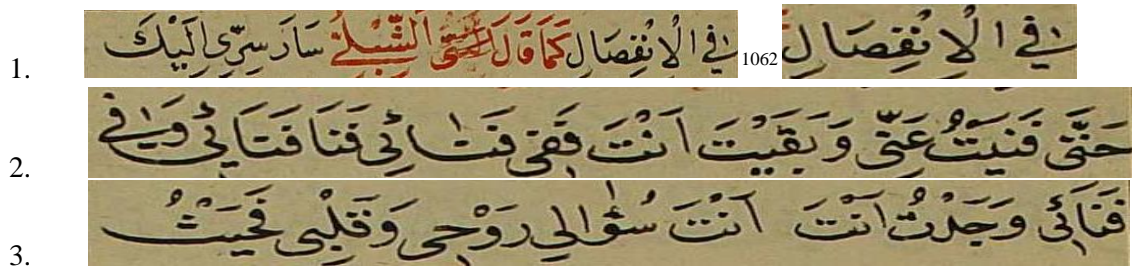 1. فِي الْاِنْفِصَالِ 1062 فِي الْاِنْفِصَالِ كَمَا قَالَ الشِّبْلِيُّ سَارَ سِرِّي اِلَيْكَ
2. حَتَّى فَنَيْتُ عَنِّي وَبَقَيْتَ اَنْتَ فَفِي فَنَائِي فَنَا فَنَائِي وَفِي
3. فَنَائِي وَجَدْتُ اَنْتَ اَنْتَ سُؤَالِي رَوْحِي وَقَلْبِي فَحَيْثُ